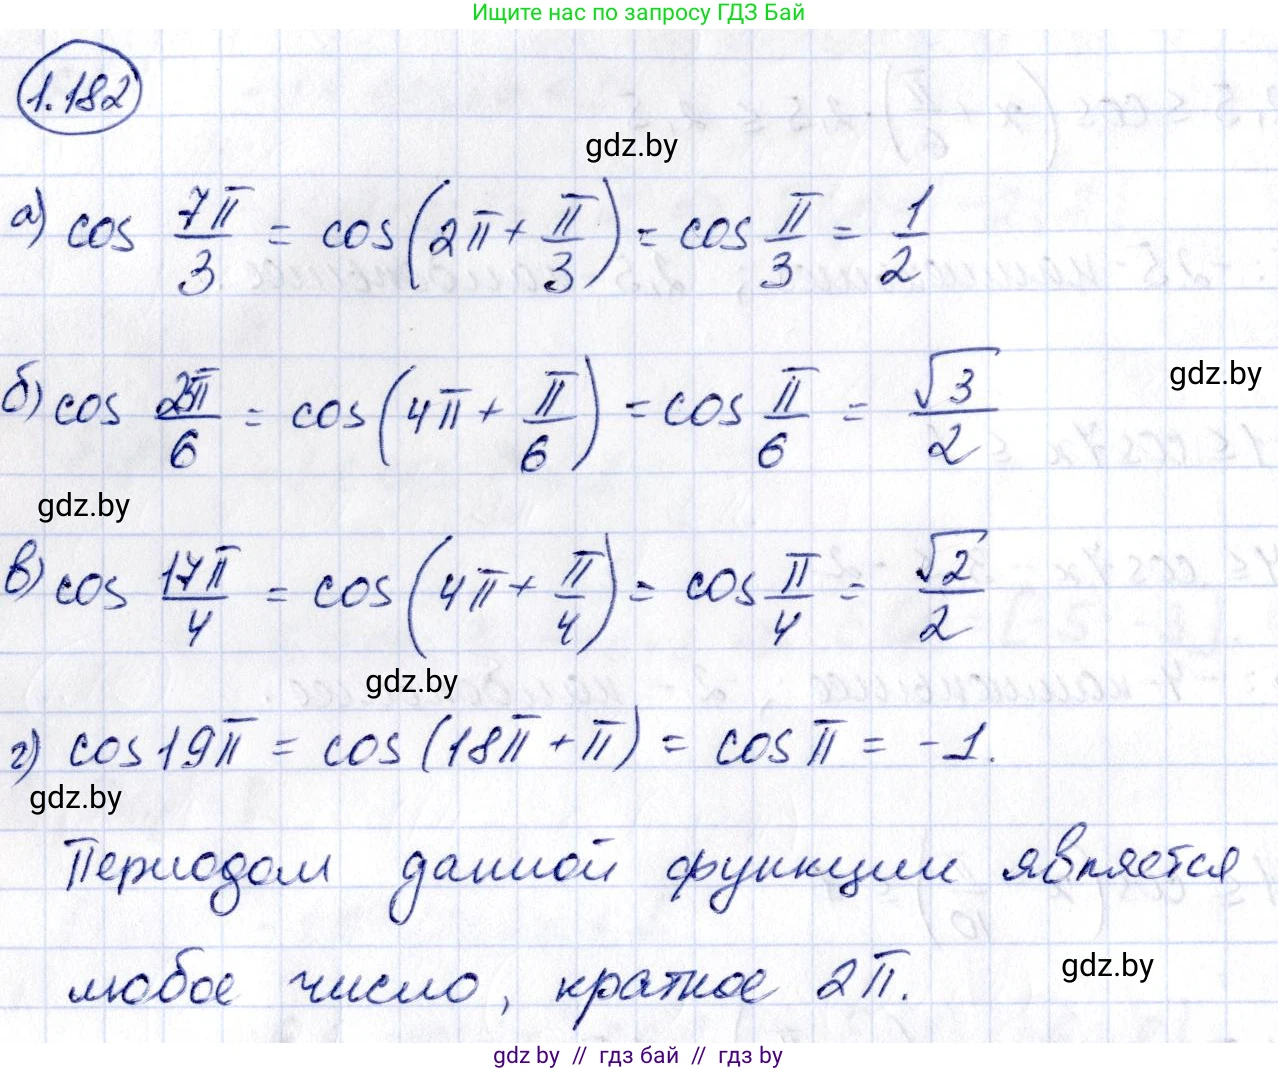 Ищите нас по запросу ГДЗ Бай
1.182
gdz.by
а) cos 7π/3 = cos(2π + π/3) = cos π/3 = 1/2
gdz.by
б) cos 25π/6 = cos(4π + π/6) = cos π/6 = √3/2
gdz.by
в) cos 17π/4 = cos(4π + π/4) = cos π/4 = √2/2
gdz.by
г) cos 19π = cos(18π + π) = cos π = -1.
gdz.by
Периодом данной функции является
любое число, кратное 2π.
gdz.by
gdz by // гдз бай // гдз by